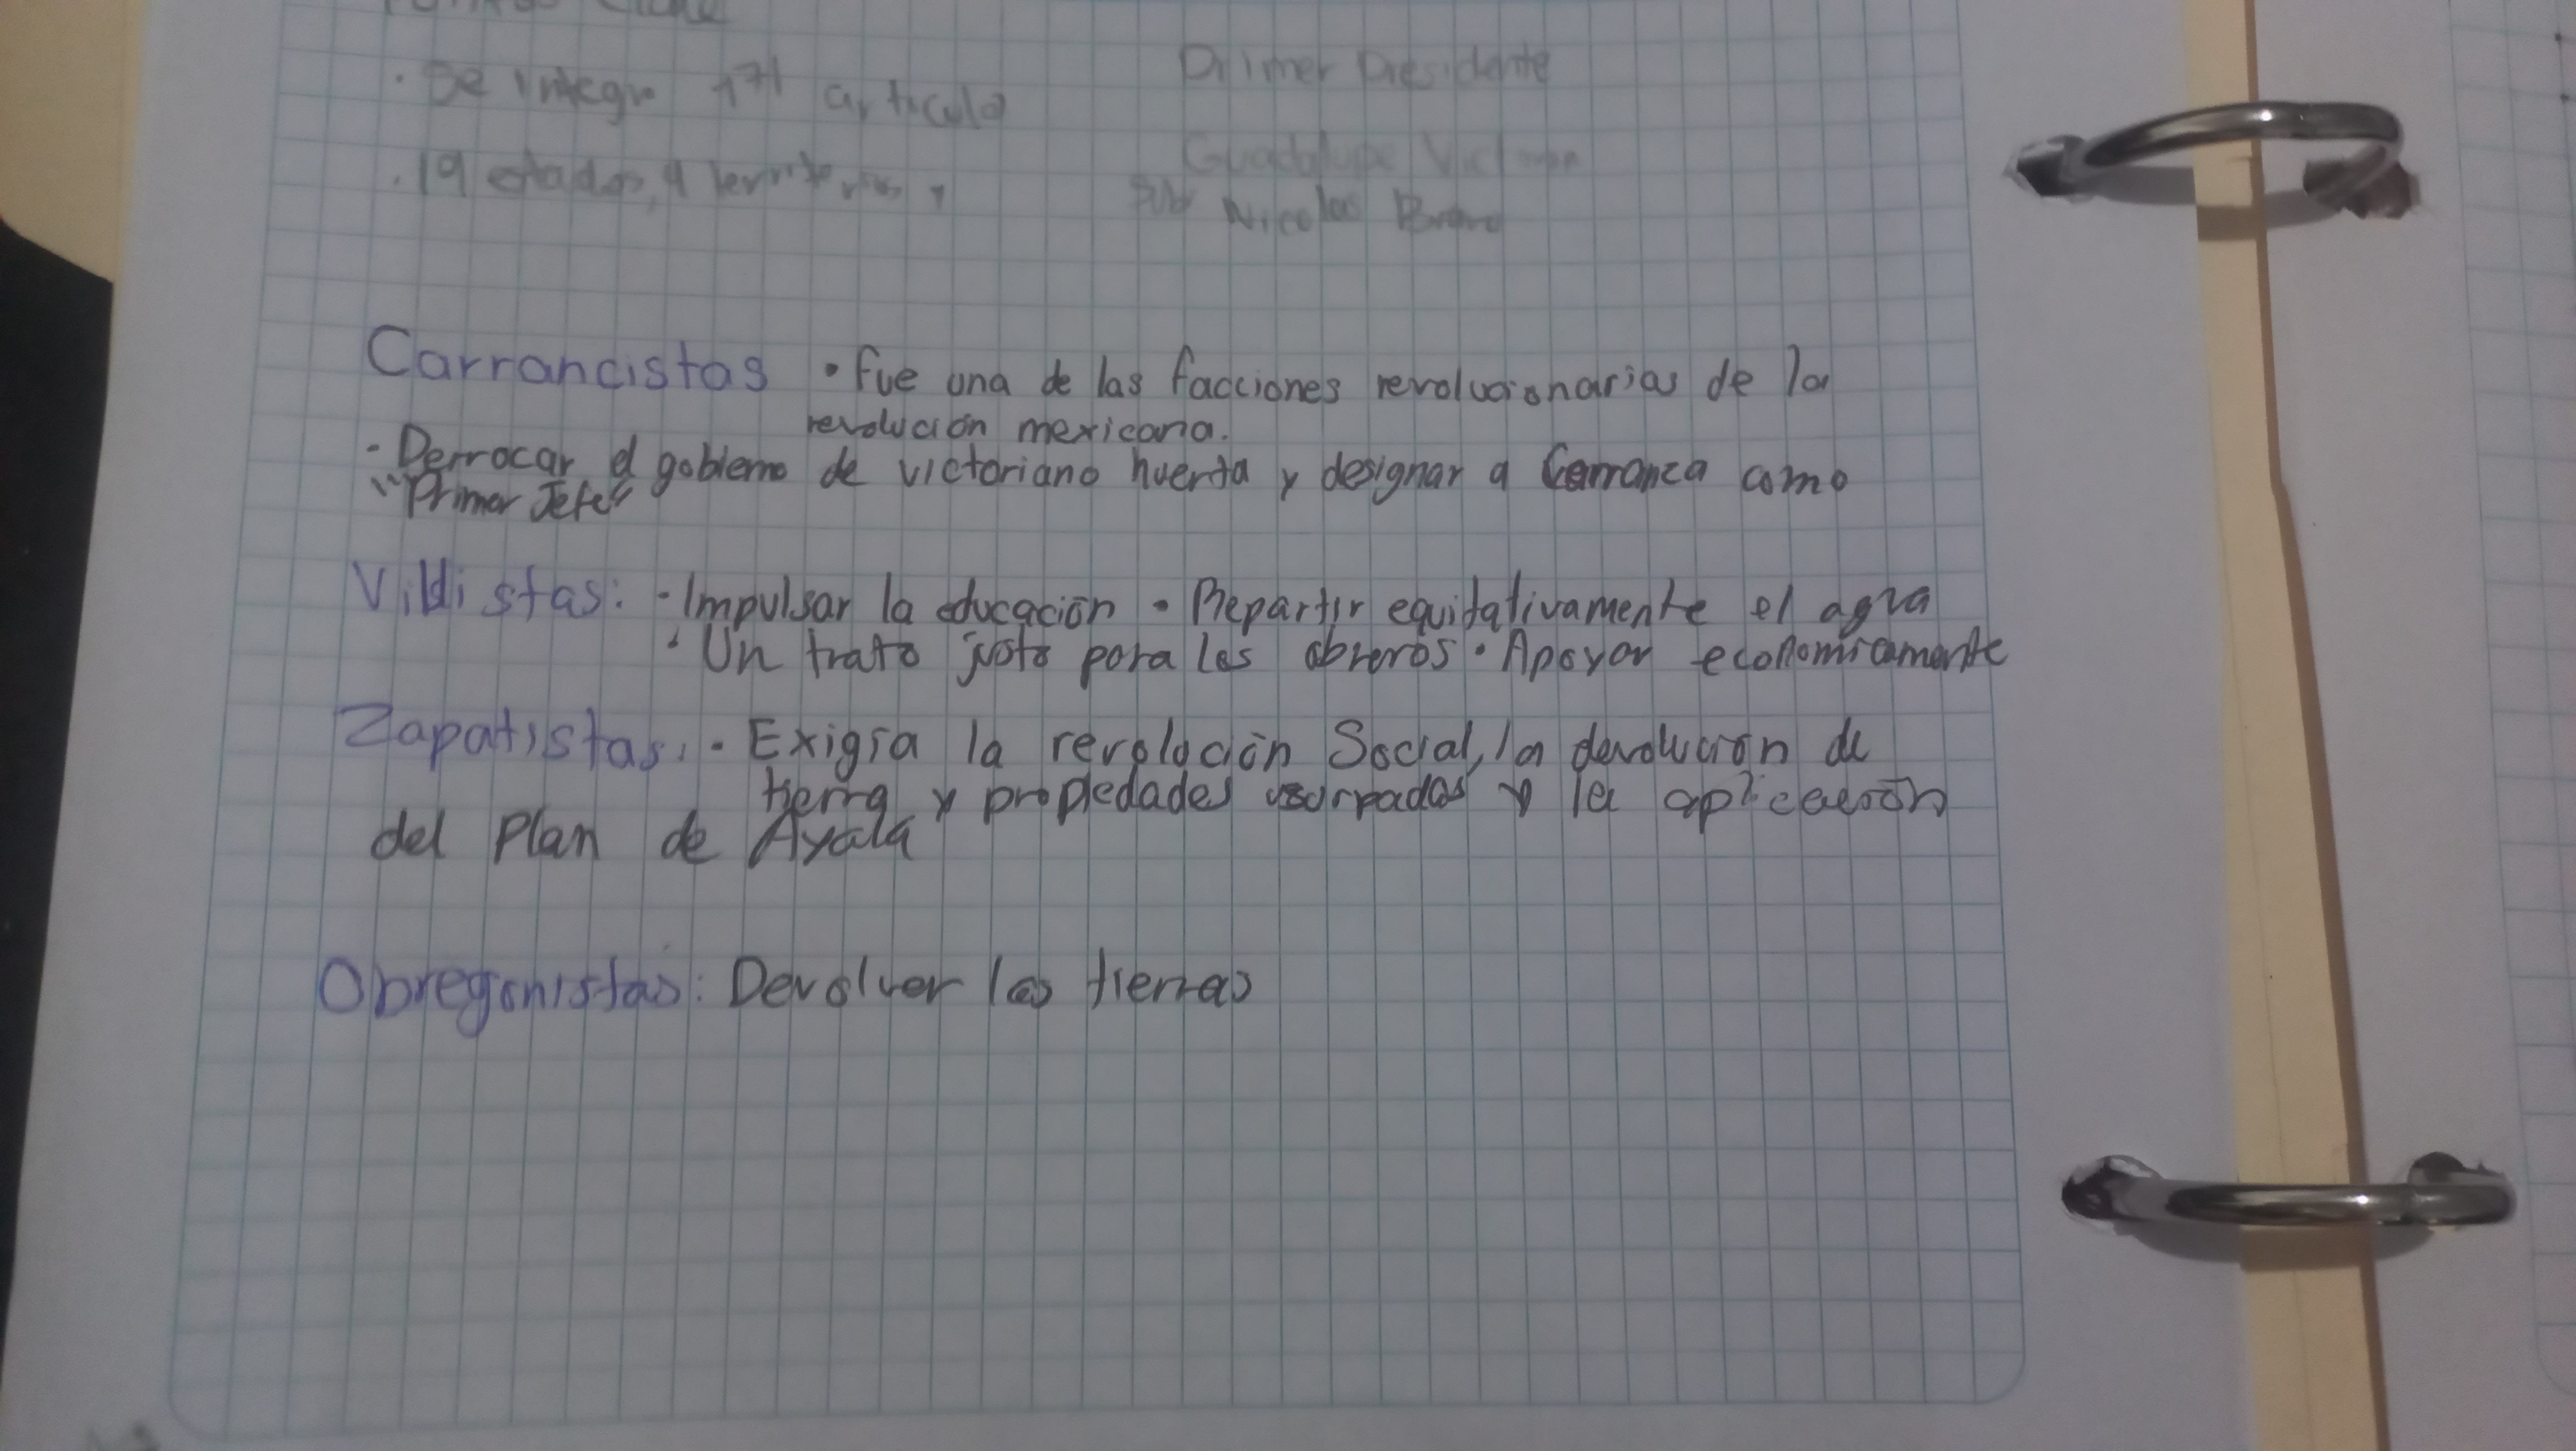 · Se integro 171 articulo
Primer Presidente
· 19 estados, 4 territorios y
Guadalupe Victoria
Nicolas Bravo
Carrancistas · Fue una de las facciones revolucionarias de la
revolución mexicana.
- Derrocar el gobierno de victoriano huerta y designar a Carranza como
"Primer Jefe"
Villistas: · Impulsar la educación · Repartir equitativamente el agua
· Un trato justo para los obreros · Apoyar economicamente
Zapatistas. · Exigía la revolución Social, la devolución de
tierra y propiedades usurpadas y la aplicación
del Plan de Ayala
Obregonistas: Devolver las tierras